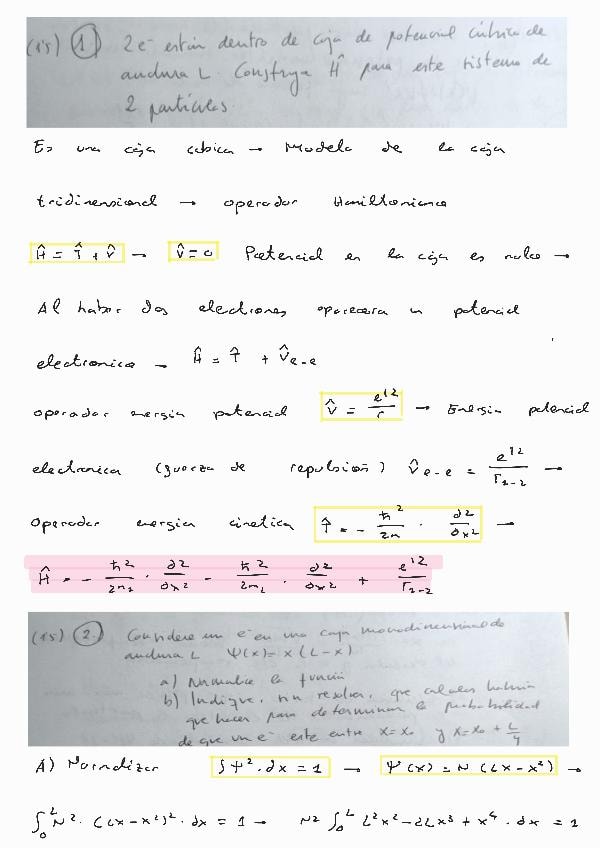 (1'5) 1) 2e⁻ están dentro de caja de potencial cúbica de
anchura L. Construya Ĥ para este sistema de
2 partículas.
Es una caja cubica → Modelo de la caja
tridimensional → operador Hamiltoniano
Ĥ = T̂ + V̂ → V̂ = 0 Potencial en la caja es nulo →
Al haber dos electrones aparecera un potencial
electronico → Ĥ = T̂ + V̂e-e
operador energia potencial V̂ = e'²/r → Energia potencial
electronica (fuerza de repulsion) V̂e-e = e'²/r₁₋₂ →
Operador energia cinetica T̂ = - ħ²/2m · ∂²/∂x² →
Ĥ = - ħ²/2m₁ · ∂²/∂x² - ħ²/2m₂ · ∂²/∂x² + e'²/r₁₋₂
(1'5) 2. Considere un e⁻ en una caja monodimensional de
anchura L Ψ(x) = x(L-x)
a) Normalice la función
b) Indique, sin resolver, que calculos habría
que hacer para determinar la probabilidad
de que un e⁻ este entre x=x₀ y x=x₀ + L/4
A) Normalizar ∫Ψ²·dx = 1 → Ψ(x) = N (Lx - x²) →
∫₀ᴸ N² · (Lx - x²)² · dx = 1 → N² ∫₀ᴸ L²x² - 2Lx³ + x⁴ · dx = 1